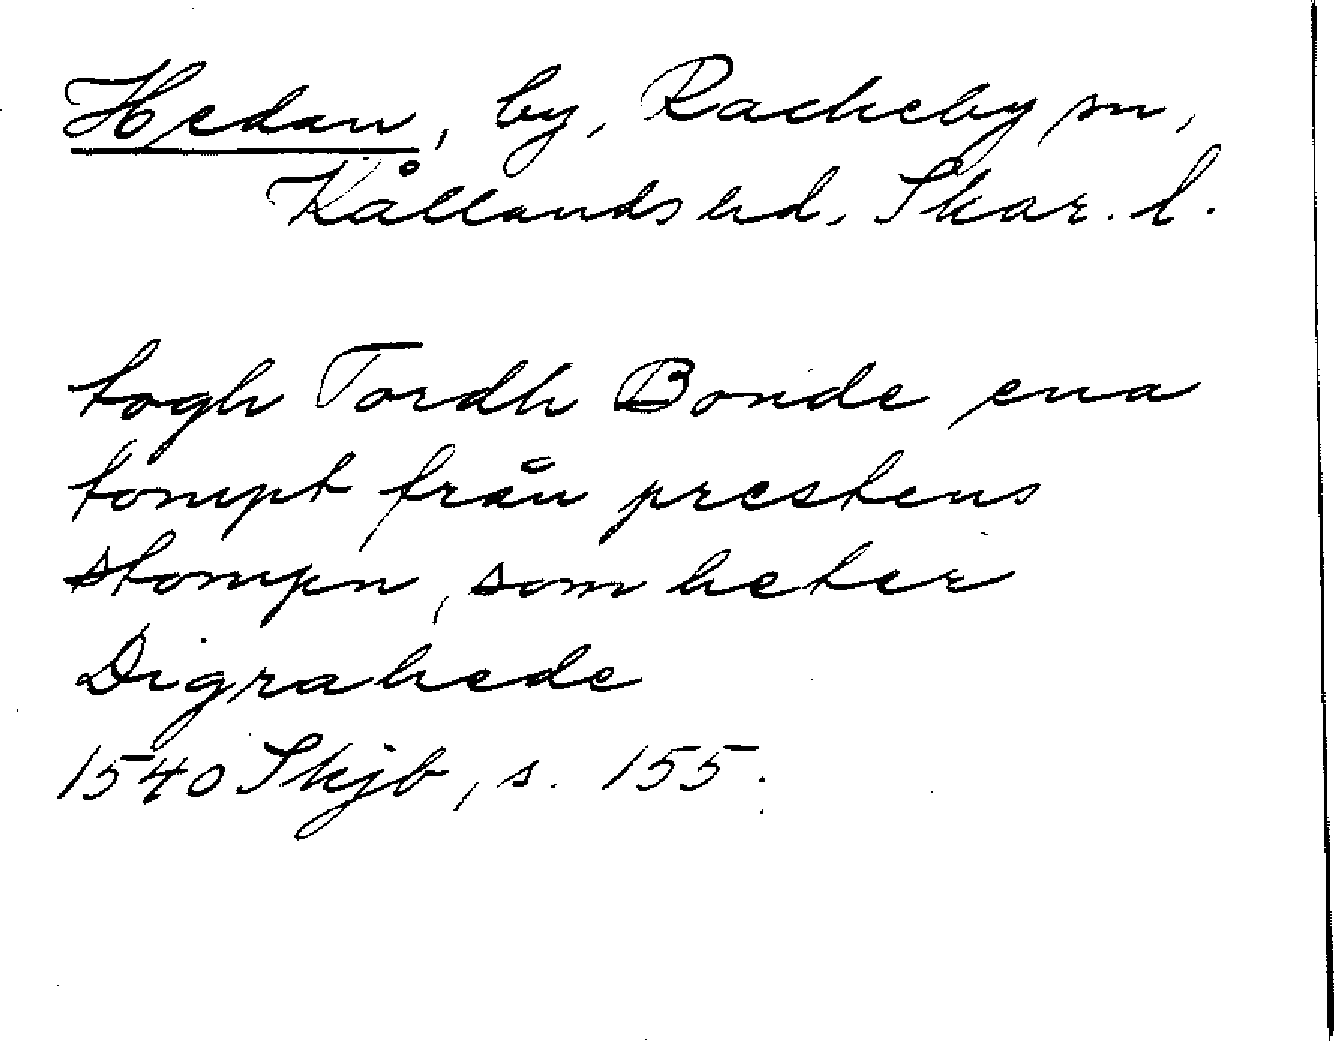 Hedan, by, Rackeby sn,
Kållands hd, Skar. l.
togh Tordh Bonde ena
tompt från prestens
stompn, som heter
Digrahede
1540 Skjb, s. 155.